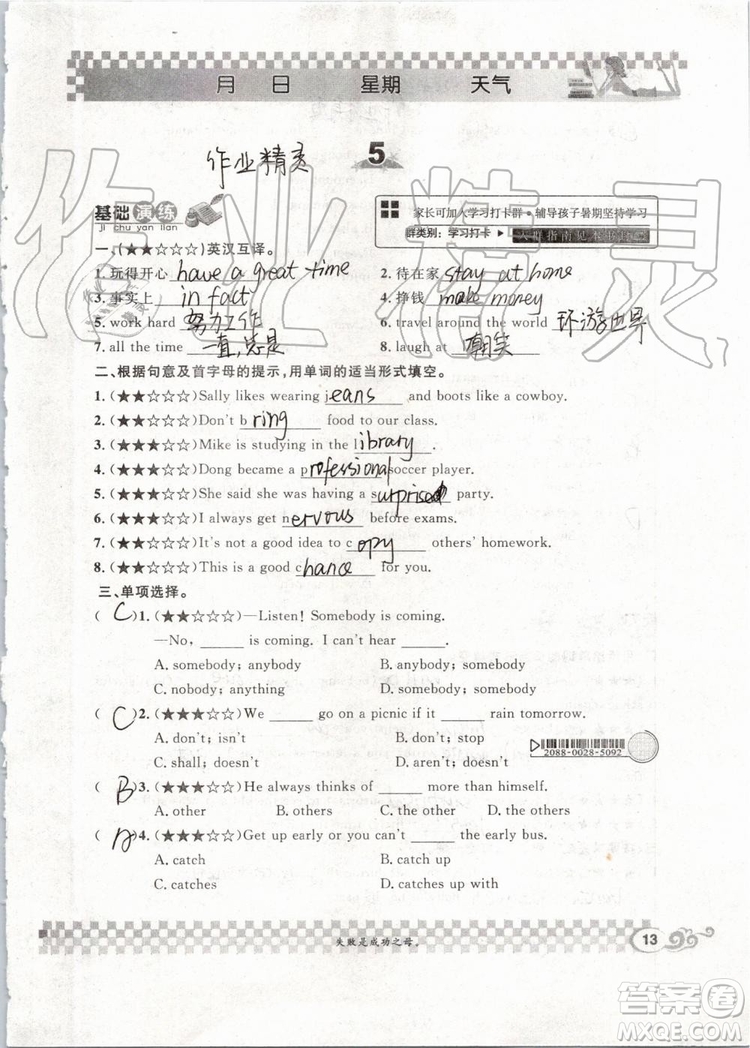 月 日 星期 天气
作业精灵
5
基础演练
ji chu yan lian
家长可加入学习打卡群·辅导孩子暑期坚持学习
群类别：学习打卡
一、(★★☆☆☆)英汉互译。
1. 玩得开心 have a great time 2. 待在家 stay at home
3. 事实上 in fact 4. 挣钱 make money
5. work hard 努力工作 6. travel around the world 环游世界
7. all the time 一直，总是 8. laugh at 嘲笑
二、根据句意及首字母的提示，用单词的适当形式填空。
1. (★★☆☆☆)Sally likes wearing jeans and boots like a cowboy.
2. (★★☆☆☆)Don't bring food to our class.
3. (★★☆☆☆)Mike is studying in the library.
4. (★★☆☆☆)Dong became a professional soccer player.
5. (★★☆☆☆)She said she was having a surprise party.
6. (★★☆☆☆)I always get nervous before exams.
7. (★★☆☆☆)It's not a good idea to copy others' homework.
8. (★★☆☆☆)This is a good chance for you.
三、单项选择。
( C )1. (★★☆☆☆)—Listen! Somebody is coming.
—No, ______ is coming. I can't hear ______.
A. somebody; anybody B. anybody; somebody
C. nobody; anything D. nobody; something
( C )2. (★★★☆☆)We ______ go on a picnic if it ______ rain tomorrow.
A. don't; isn't B. don't; stop
C. shall; doesn't D. will; needn't
2088-0028-5092
( B )3. (★★★☆☆)He always thinks of ______ more than himself.
A. other B. others C. the other D. the others
( A )4. (★★★☆☆)Get up early or you can't ______ the early bus.
A. catch B. catch up
C. catches D. catches up with
失败是成功之母。
13
作业精灵
答案圈
MXQE.COM